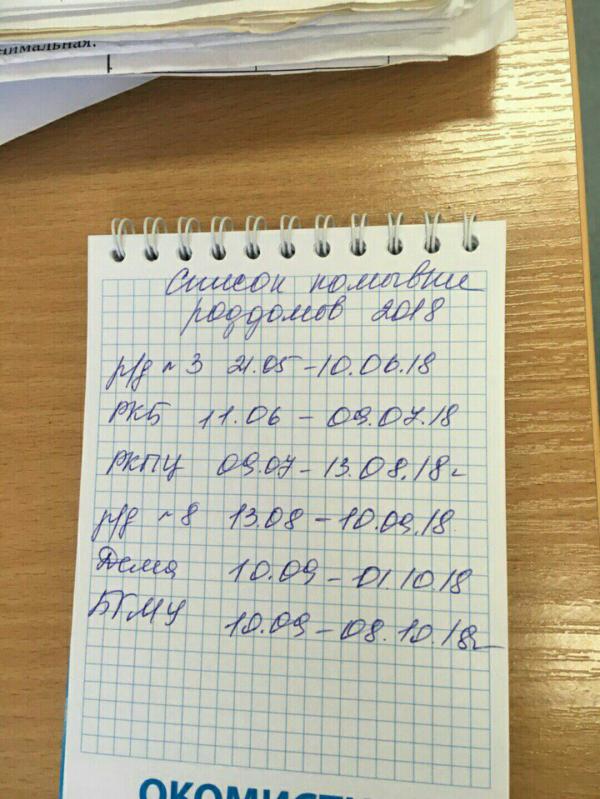 нимальная.
Список помывки
роддомов 2018
р/д №3 21.05 – 10.06.18
РКБ 11.06 – 09.07.18
РКПЦ 09.07 – 13.08.18г
р/д №8 13.08 – 10.09.18
Дема 10.09 – 01.10.18
БГМУ 10.09 – 08.10.18г